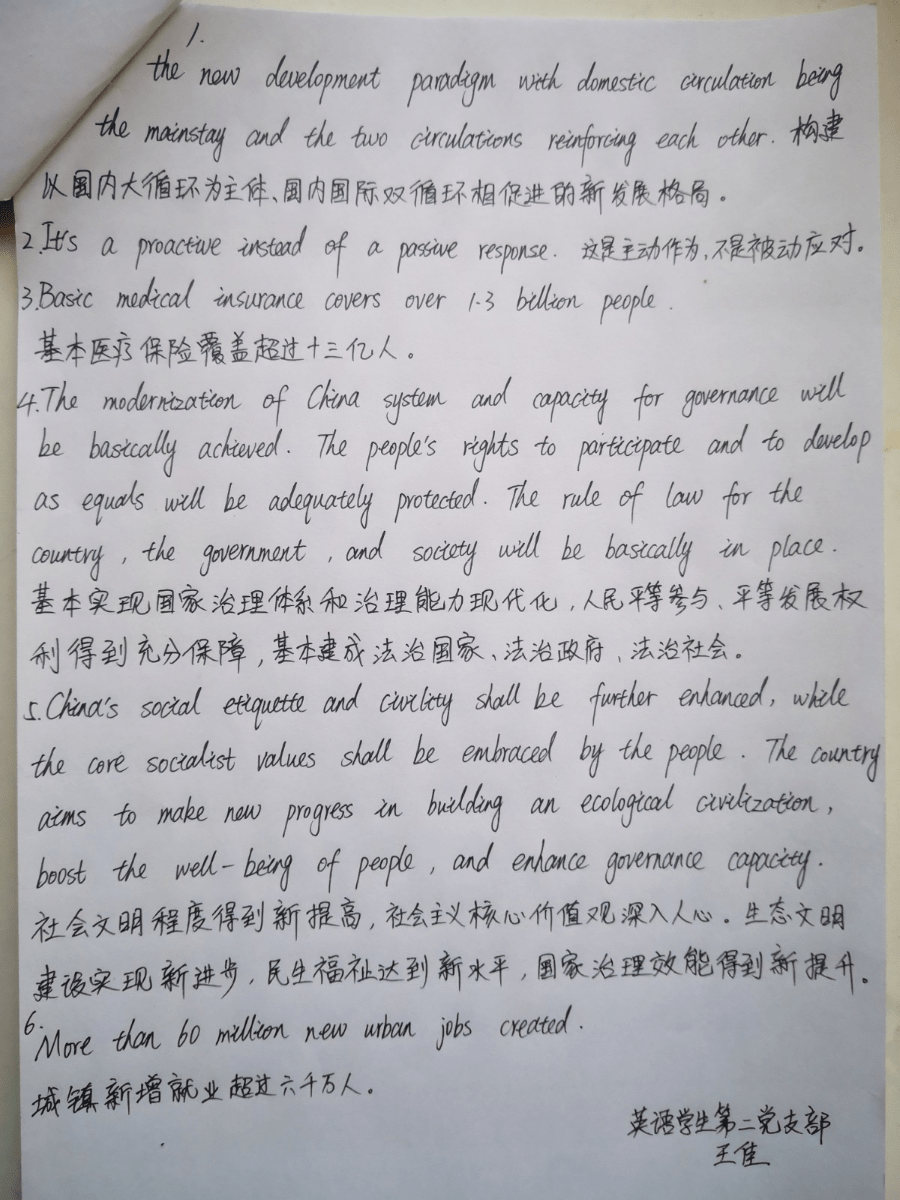 1.
the new development paradigm with domestic circulation being
the mainstay and the two circulations reinforcing each other. 构建
以国内大循环为主体、国内国际双循环相促进的新发展格局。
2. It's a proactive instead of a passive response. 这是主动作为,不是被动应对。
3. Basic medical insurance covers over 1.3 billion people.
基本医疗保险覆盖超过十三亿人。
4. The modernization of China system and capacity for governance will
be basically achieved. The people's rights to participate and to develop
as equals will be adequately protected. The rule of law for the
country, the government, and society will be basically in place.
基本实现国家治理体系和治理能力现代化,人民平等参与、平等发展权
利得到充分保障,基本建成法治国家、法治政府、法治社会。
5. China's social etiquette and civility shall be further enhanced, while
the core socialist values shall be embraced by the people. The country
aims to make new progress in building an ecological civilization,
boost the well-being of people, and enhance governance capacity.
社会文明程度得到新提高,社会主义核心价值观深入人心。生态文明
建设实现新进步,民生福祉达到新水平,国家治理效能得到新提升。
6.
More than 60 million new urban jobs created.
城镇新增就业超过六千万人。
英语学生第二党支部
王佳